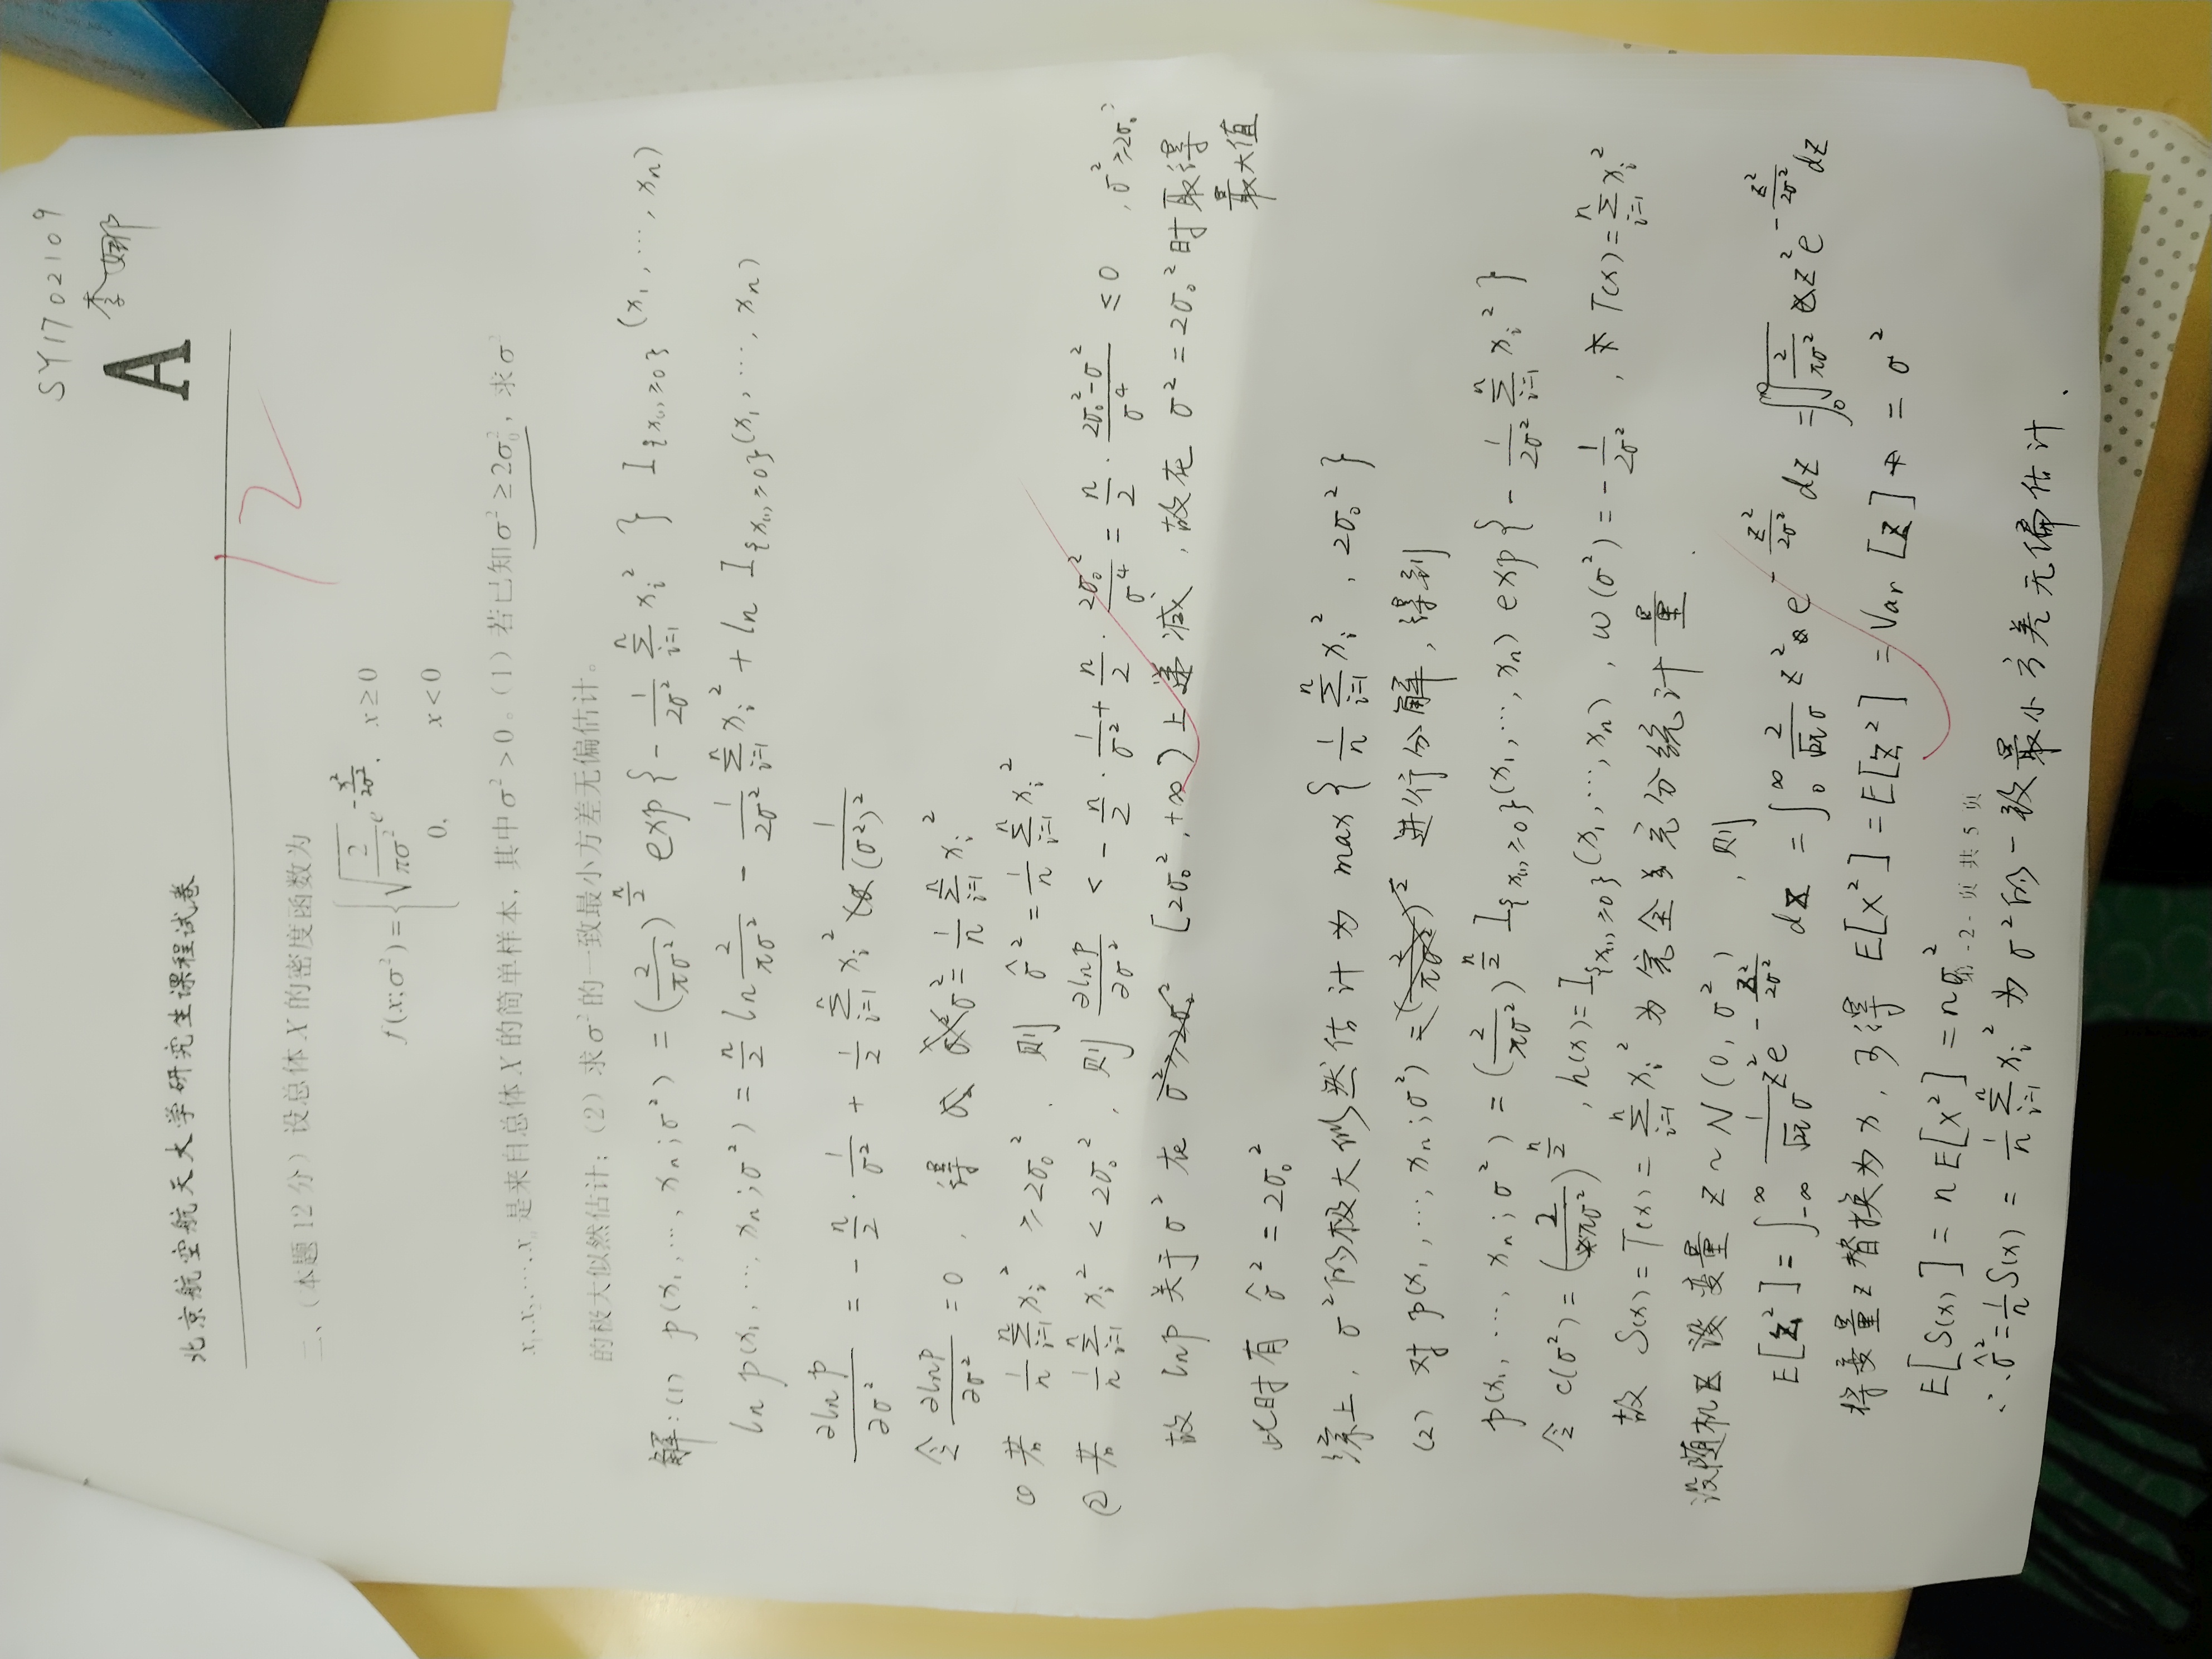 SY1702109
李娜
A
北京航空航天大学研究生课程试卷
12
二、（本题12分）设总体 X 的密度函数为
f(x;σ²)={ √(2/(πσ²)) e^{-x²/(2σ²)}, x≥0
0, x<0
x₁,x₂,…,xₙ 是来自总体 X 的简单样本，其中σ²>0。（1）若已知σ²≥2σ₀²，求σ²
的极大似然估计；（2）求σ²的一致最小方差无偏估计。
解:(1) p(x₁,…,xₙ;σ²) = (2/(πσ²))^{n/2} exp{-1/(2σ²) Σ_{i=1}^{n} xᵢ²} I_{{x₍₁₎≥0}}(x₁,…,xₙ)
ln p(x₁,…,xₙ;σ²) = n/2 ln 2/(πσ²) - 1/(2σ²) Σ_{i=1}^{n} xᵢ² + ln I_{{x₍₁₎≥0}}(x₁,…,xₙ)
∂ln p/∂σ² = -n/2 · 1/σ² + 1/2 Σ_{i=1}^{n} xᵢ² 1/(σ²)²
令 ∂lnp/∂σ² = 0, 得 σ² = 1/n Σ_{i=1}^{n} xᵢ²
① 若 1/n Σ_{i=1}^{n} xᵢ² ≥ 2σ₀², 则 σ̂² = 1/n Σ_{i=1}^{n} xᵢ²
② 若 1/n Σ_{i=1}^{n} xᵢ² < 2σ₀², 则 ∂lnp/∂σ² < -n/2 · 1/σ² + n/2 · 2σ₀²/σ⁴ = n/2 · (2σ₀²-σ²)/σ⁴ ≤ 0 , σ²≥2σ₀²
故 lnp 关于 σ² 在 [2σ₀²,+∞)上递减, 故在 σ²=2σ₀²时取得
最大值
此时有 σ̂² = 2σ₀²
综上, σ²的极大似然估计为 max{1/n Σ_{i=1}^{n} xᵢ², 2σ₀²}
(2) 对 p(x₁,…,xₙ;σ²) 进行分解, 得到
p(x₁,…,xₙ;σ²) = (2/(πσ²))^{n/2} I_{{x₍₁₎≥0}}(x₁,…,xₙ) exp{-1/(2σ²) Σ_{i=1}^{n} xᵢ²}
令 c(σ²) = (2/(πσ²))^{n/2}, h(x)=I_{{x₍₁₎≥0}}(x₁,…,xₙ), ω(σ²) = -1/(2σ²), T(x)=Σ_{i=1}^{n} xᵢ²
故 S(x)=T(x)= Σ_{i=1}^{n} xᵢ² 为完全充分统计量.
设随机变量 Z~N(0,σ²), 则
E[Z²] = ∫_{-∞}^{∞} 1/(√2π σ) z² e^{-z²/(2σ²)} dz = ∫_0^∞ 2/(√2π σ) z² e^{-z²/(2σ²)} dz = ∫_0^∞ √(2/(πσ²)) z² e^{-z²/(2σ²)} dz
将变量z替换为x, 可得 E[X²] = E[Z²] = Var[Z] = σ²
E[S(x)] = nE[X²] = nσ²
第 -2- 页 共 5 页
∴ σ̂² = 1/n S(x) = 1/n Σ_{i=1}^{n} xᵢ² 为 σ²的一致最小方差无偏估计.